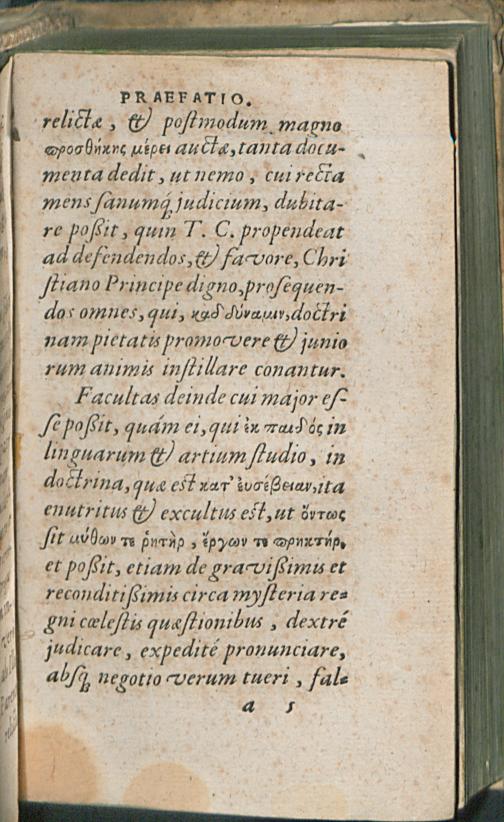 PRAEFATIO.
relictæ, & postmodum magno
προσθήκης μέρει auctæ, tanta docu-
menta dedit, ut nemo, cui recta
mens sanumq́; judicium, dubita-
re poßit, quin T. C. propendeat
ad defendendos, & favore, Chri
stiano Principe digno, prosequen-
dos omnes, qui, καδ δύναμιν, doctri
nam pietatis promovere & junio
rum animis instillare conantur.
Facultas deinde cui major es-
se poßit, quám ei, qui ἐκ παιδός in
linguarum & artium studio, in
doctrina, quæ est κατ' ἐυσέβειαν, ita
enutritus & excultus est, ut ὄντως
sit μύθων τε ῥητὴρ, ἔργων τε πρηκτήρ,
et poßit, etiam de gravißimis et
reconditißimis circa mysteria re=
gni cœlestis quæstionibus, dextré
judicare, expedité pronunciare,
absq; negotio verum tueri, fal=
a 5